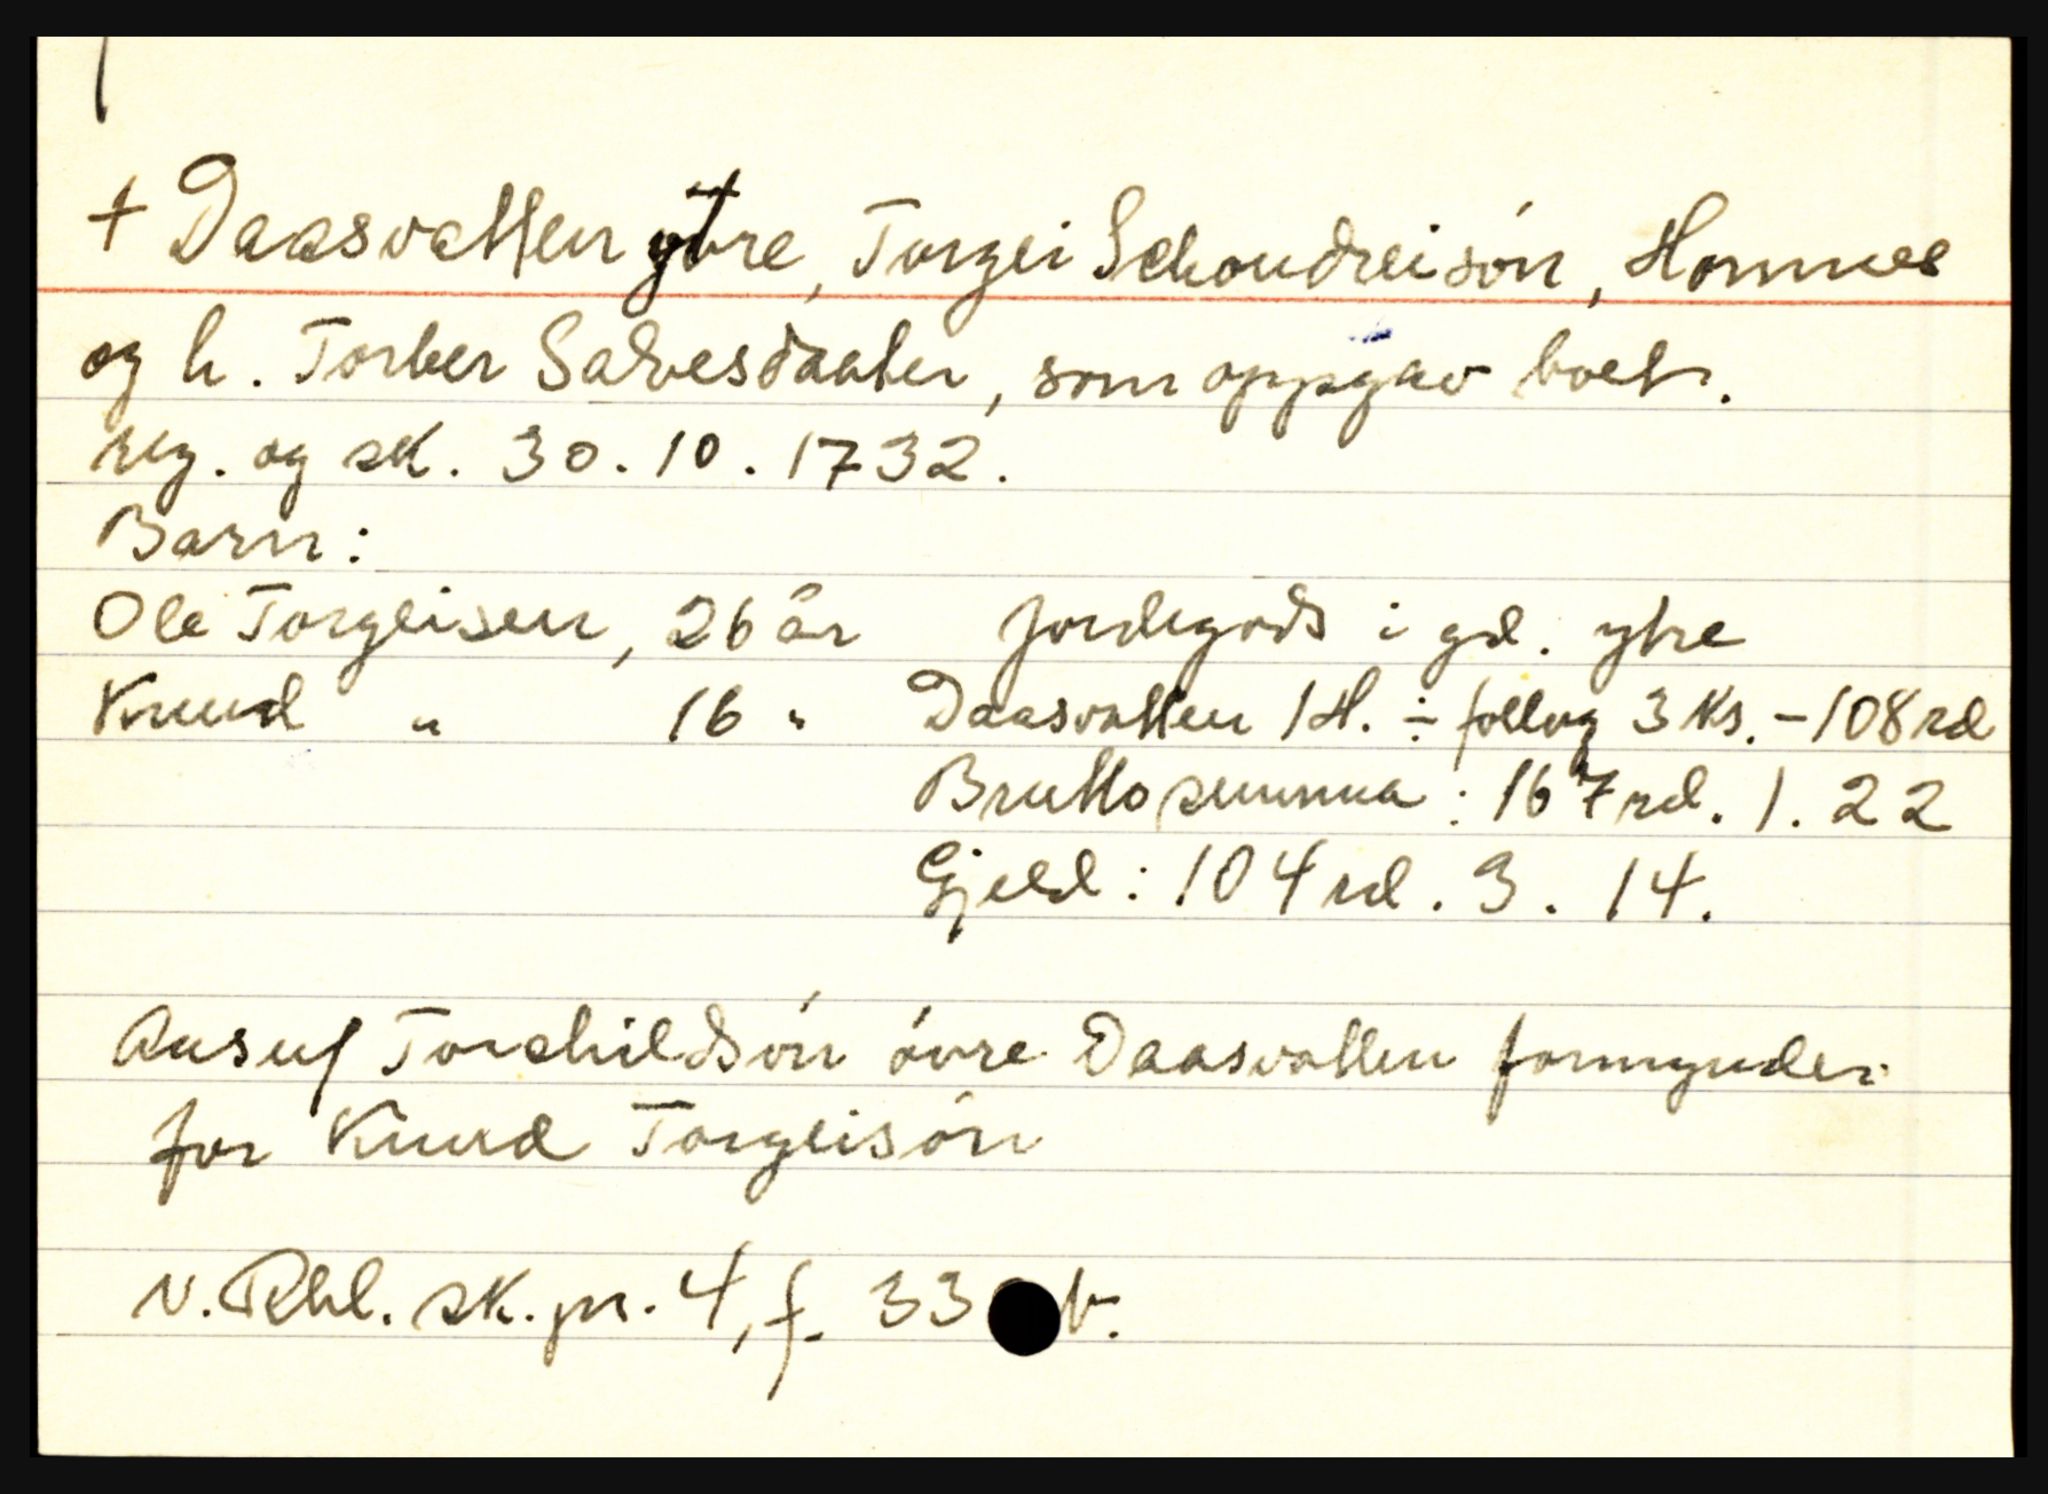 + Daasvatten ytre, Torgei Schoudreisón, Homnes
og h. Torber Salvesdaater, som oppgav boet.
reg. og sk. 30.10.1732.
Barn:
Ole Torgeisen, 26 år Jordegods i gd. ytre
Knud " 16 " Daasvatten 1 H. ÷ follog 3 ks. - 108 rd
Brutto summa: 167 rd. 1. 22
Gjeld: 104 rd. 3. 14.
Ansuf Torchildsón óvre Daasvatten formynder
for Knud Torgeisón
N. Rbl. sk. pr. 4, f. 33 b.